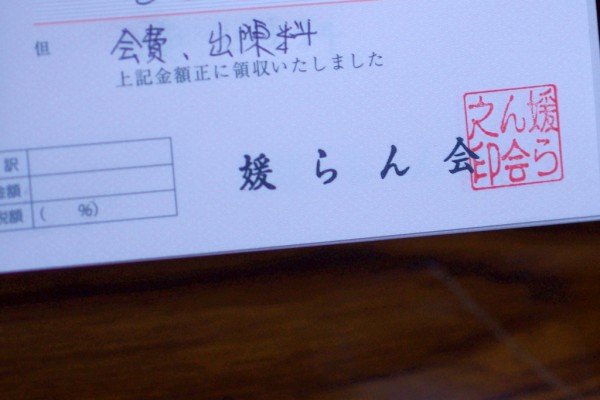 但 会費、出陳料
上記金額正に領収いたしました
訳
金額
税額 ( %)
媛らん会
媛らん会之印